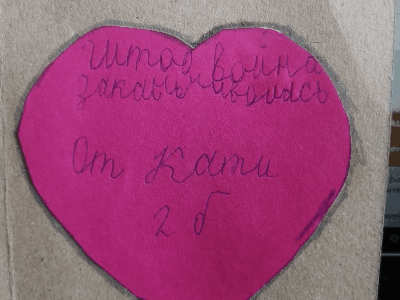 Штоб война
заканчивалась
От Кати
2 б